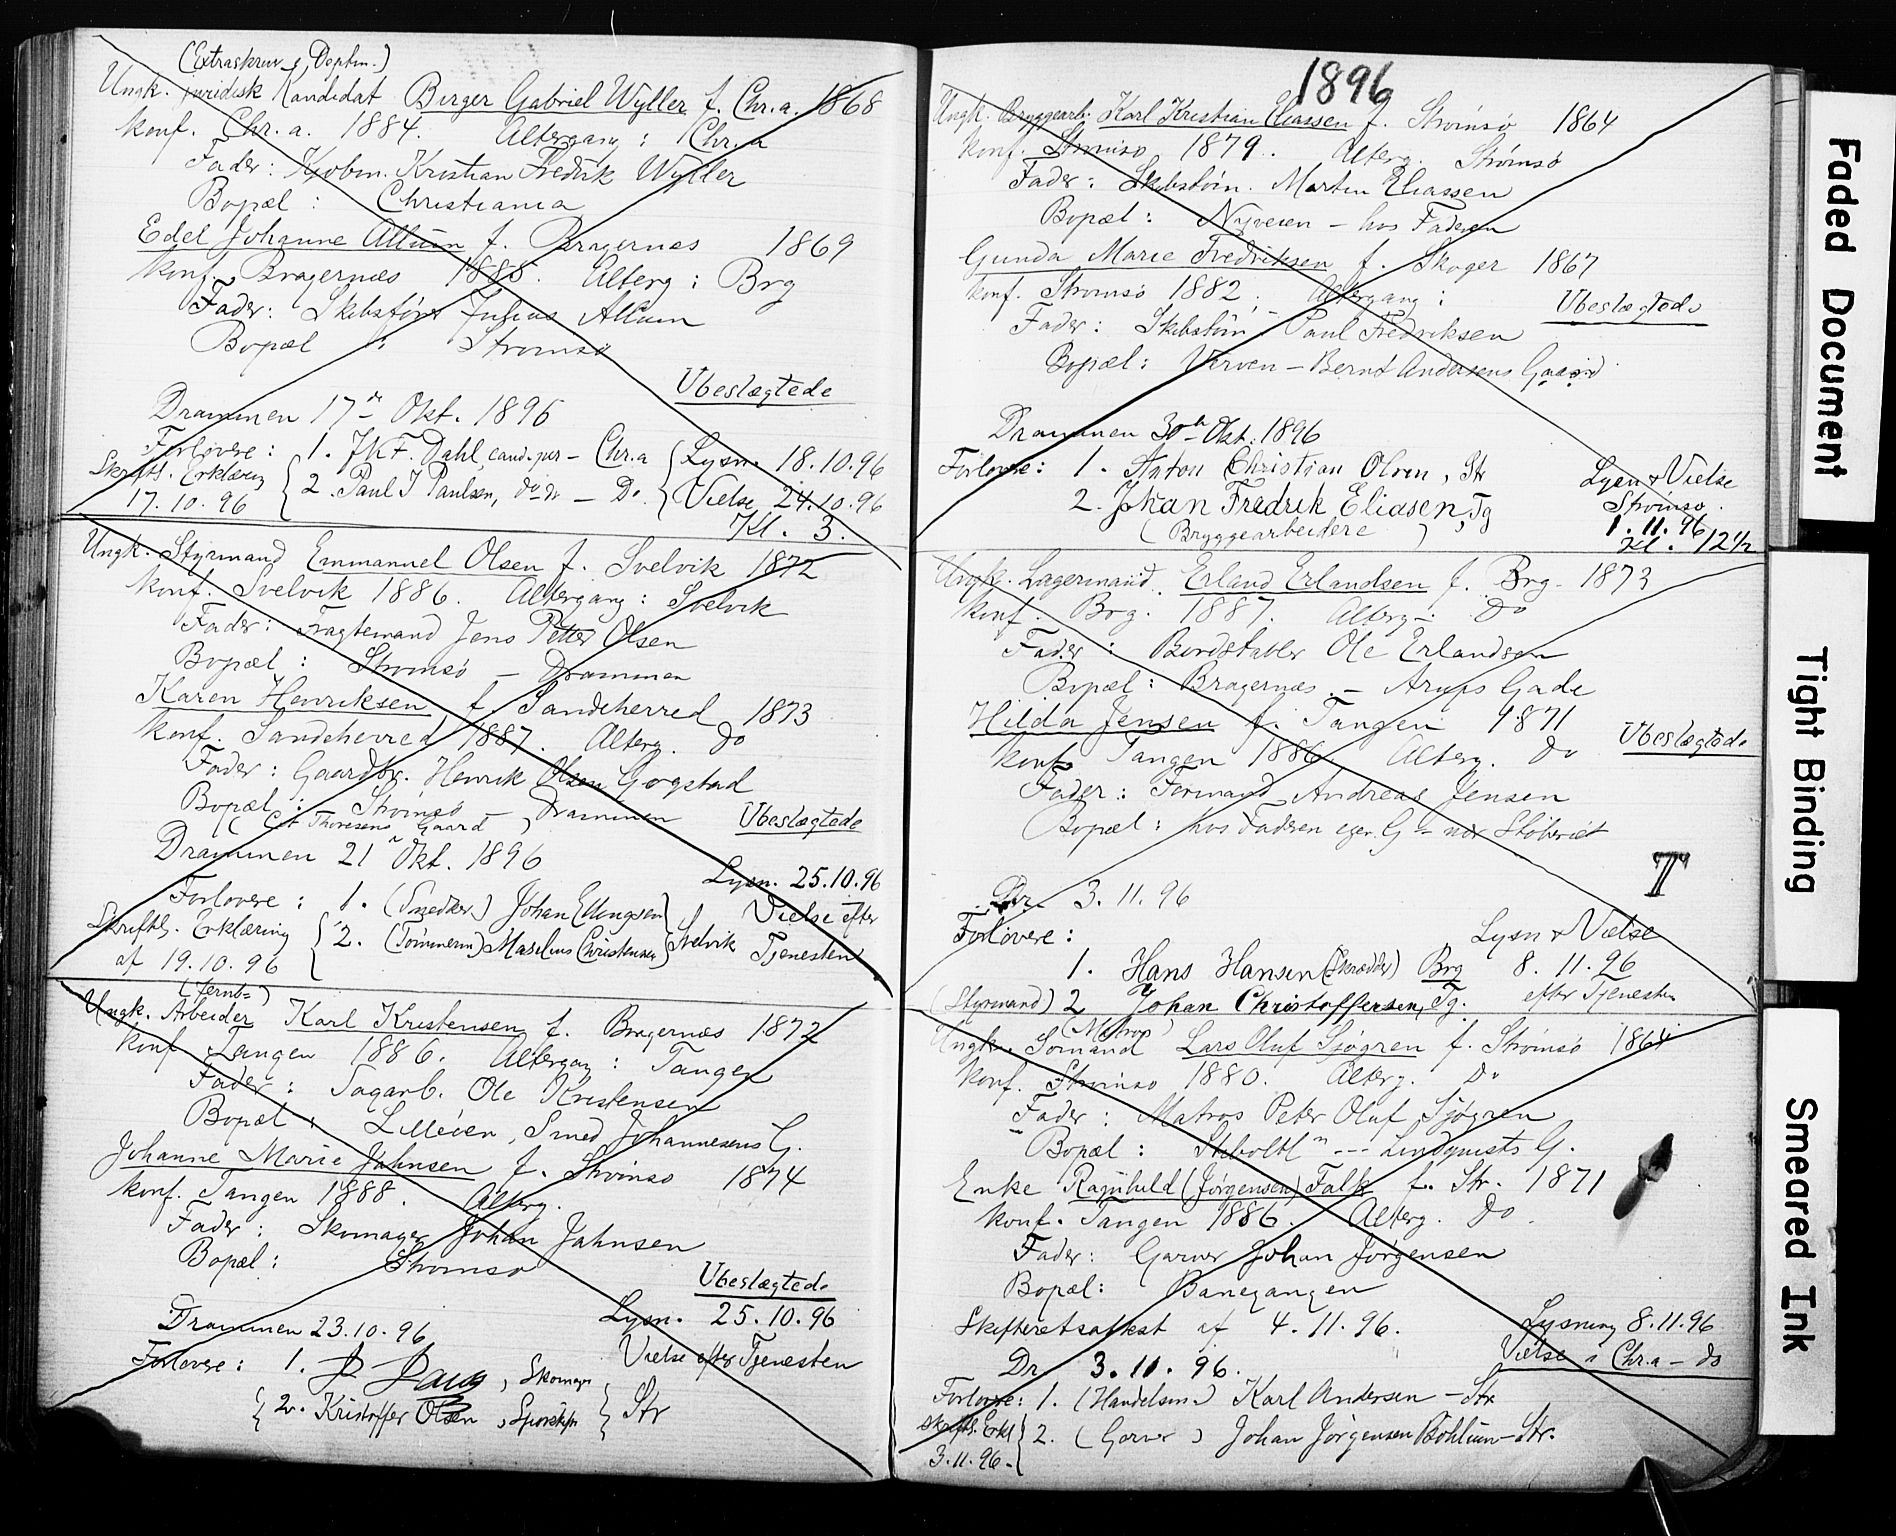 (Extraskriv. i Deptm.)
Ungk. juridisk Kandidat Birger Gabriel Wyller f. Chr.a. 1868
Konf. Chr.a. 1884. Altergang: Chr.a
Fader: Kjøbm. Kristian Fredrik Wyller
Bopæl: Christiania
Edel Johanne Allum f. Bragernæs 1869
Konf. Bragernæs 1885. Alterg: Brg
Fader: Skibsfører Julius Allum
Bopæl: Strømsø
Ubeslægtede
Drammen 17de Okt. 1896
Forlovere: 1. F. Dahl, cand. jur - Chr.a
Skriftl. Erklæring 17.10.96
2. Paul J Paulsen, do do - Do.
Lysn. 18.10.96
Vielse 24.10.96
Kl. 3.
Ungk. Styrmand Emmanuel Olsen f. Svelvik 1872
Konf. Svelvik 1886. Altergang: Svelvik
Fader: Fragtemand Jens Petter Olsen
Bopæl: Strømsø - Drammen
Karen Henriksen f. Sandeherred 1873
Konf. Sandeherred 1887. Alterg. do
Fader: Gaardbr. Henrik Olsen Gogstad
Bopæl: Strømsø - Drammen
( Thoresens Gaard )
Ubeslægtede
Drammen 21 Okt. 1896
Lysn. 25.10.96
Forlovere: 1. (Snedker) Johan Ellingsen
Skriftl. Erklæring af 19.10.96
2. (Tømmerm) Maselius Christensen Svelvik
Vielse efter Tjenesten
(Jernb=)
Ungk. Arbeider Karl Kristensen f. Bragernæs 1872
Konf Tangen 1886. Altergang: Tangen
Fader: Sagarb. Ole Kristensen
Bopæl: Lilleien, Smed Johannesens G.
Johanne Marie Jahnsen f. Strømsø 1874
Konf. Tangen 1888. Alterg.
Fader: Skomager Johan Jahnsen
Bopæl: Strømsø
Ubeslægtede
Drammen 23.10.96
Lysn. 25.10.96
Vielse efter Tjenesten
Forlovere: 1. , Skomager
2. Kristoffer Olsen, Str
1896
Ungk. Bryggearb. Karl Kristian Eliassen f. Strømsø 1864
Konf. Strømsø 1879. Alterg. Strømsø
Fader: Skibstøm. Martin Eliassen
Bopæl: Nyveien - hos Faderen
Gunda Marie Fredriksen f. Skoger 1867
Konf. Strømsø 1882. Altergang:
Ubeslægtede
Fader: Skibstøm. Paul Fredriksen
Bopæl: Verven - Bernt Andersens Gaard
Drammen 30te Okt. 1896
Forlovere: 1. Anton Christian Olsen, Str
2. Johan Fredrik Eliasen, Tg
(Bryggearbeidere)
Lysn & Vielse
Strømsø.
1.11.96
Kl. 12½
Ungk. Lagermand. Erland Erlandsen f. Brg. 1873
Konf. Brg. 1887. Alterg-: Do
Fader: Bordstabler Ole Erlandsen
Bopæl: Bragernæs. - Arups Gade
Hilda Jensen f. Tangen 1871
Ubeslægtede
Konf. Tangen 1886. Alterg. Do
Fader: Formand Andreas Jensen
Bopæl: hos Faderen egen G nær Støberiet
T
Dr. 3.11.96
Forlovere:
Lysn & Vielse
1. Hans Hansen (Skrædder) Brg 8.11.96
(Styrmand) 2 Johan Christoffersen, Tg. efter Tjenesten
(Matros)
Ungk. Sømand Lars Oluf Sjøgren f. Strømsø 1864
Konf. Strømsø 1880. Alterg. Do
Fader: Matros Peter Oluf Sjøgren
Bopæl: --- Lindqvists G.
Enke Ragnhild (Jørgensen) Falk f. Str. 1871
Konf. Tangen 1886. Alterg. Do.
Fader: Garver Johan Jørgensen
Bopæl: Banegangen
Skifteretsattest af 4.11.96.
Lysning 8.11.96
Vielse i Chr.a - do
Dr 3.11.96.
Forlovere: 1. (Handelsm.) Karl Andersen - Str
Skriftl. Erkl 3.11.96.
2. (Garver) Johan Jørgensen Bøhlum - Str.
Faded Document
Tight Binding
Smeared Ink